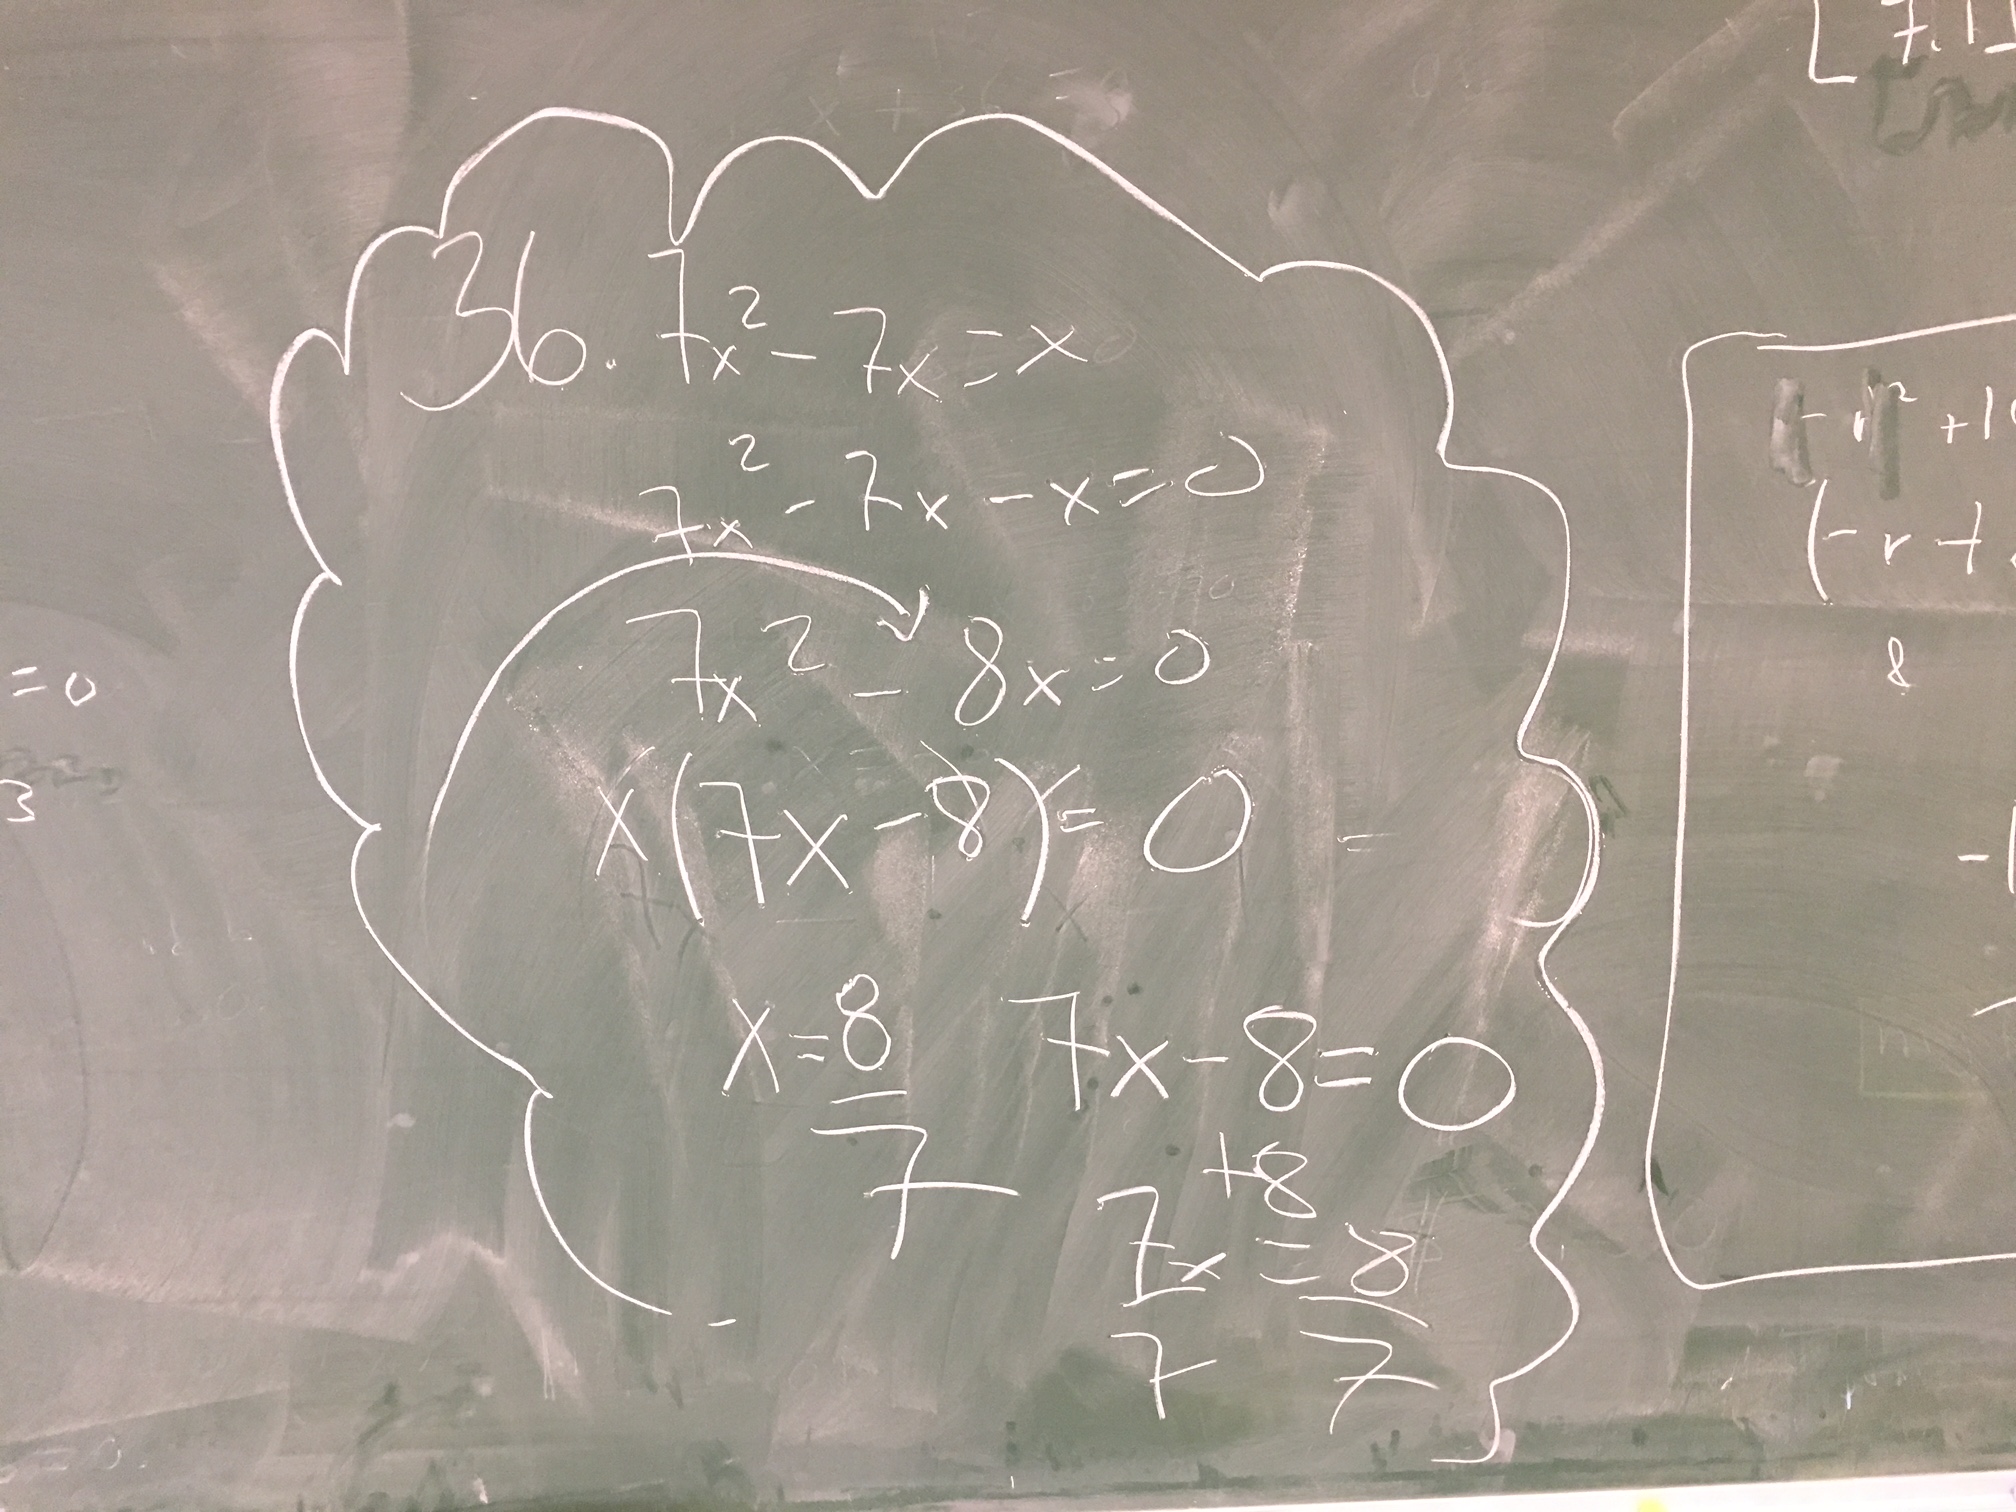 36. 7x² - 7x = x
7x² - 7x - x = 0
7x² - 8x = 0
x(7x - 8) = 0 =
x = 8/7
7x - 8 = 0
+8
7x = 8
7 7
= 0
3
7.1
- r² + 1
(- r +
8
-1